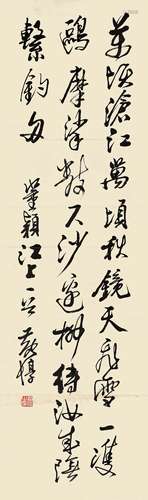 萬頃滄江萬頃秋鏡天飛雪一雙
鷗摩挲數尺沙邊柳待汝成陰
繫釣舟 董穎江上一首